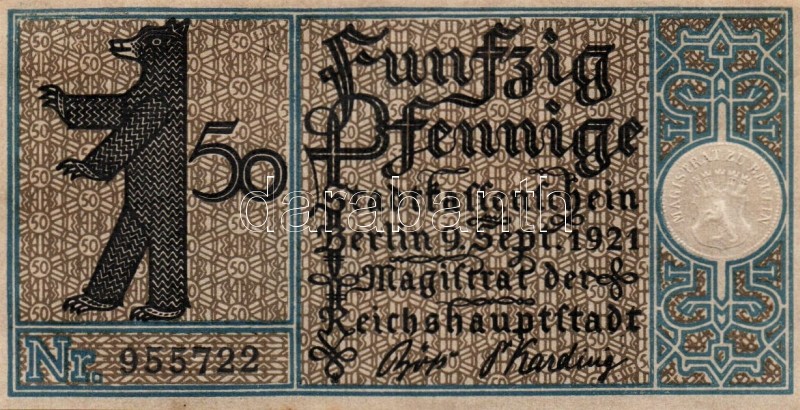 50
Fünfzig
Pfennige
Stadtkassenschein
Berlin 9. Sept. 1921
Magistrat der
Reichshauptstadt
Böß Dr Karding
MAGISTRAT ZU BERLIN
Nr. 955722
darabanth